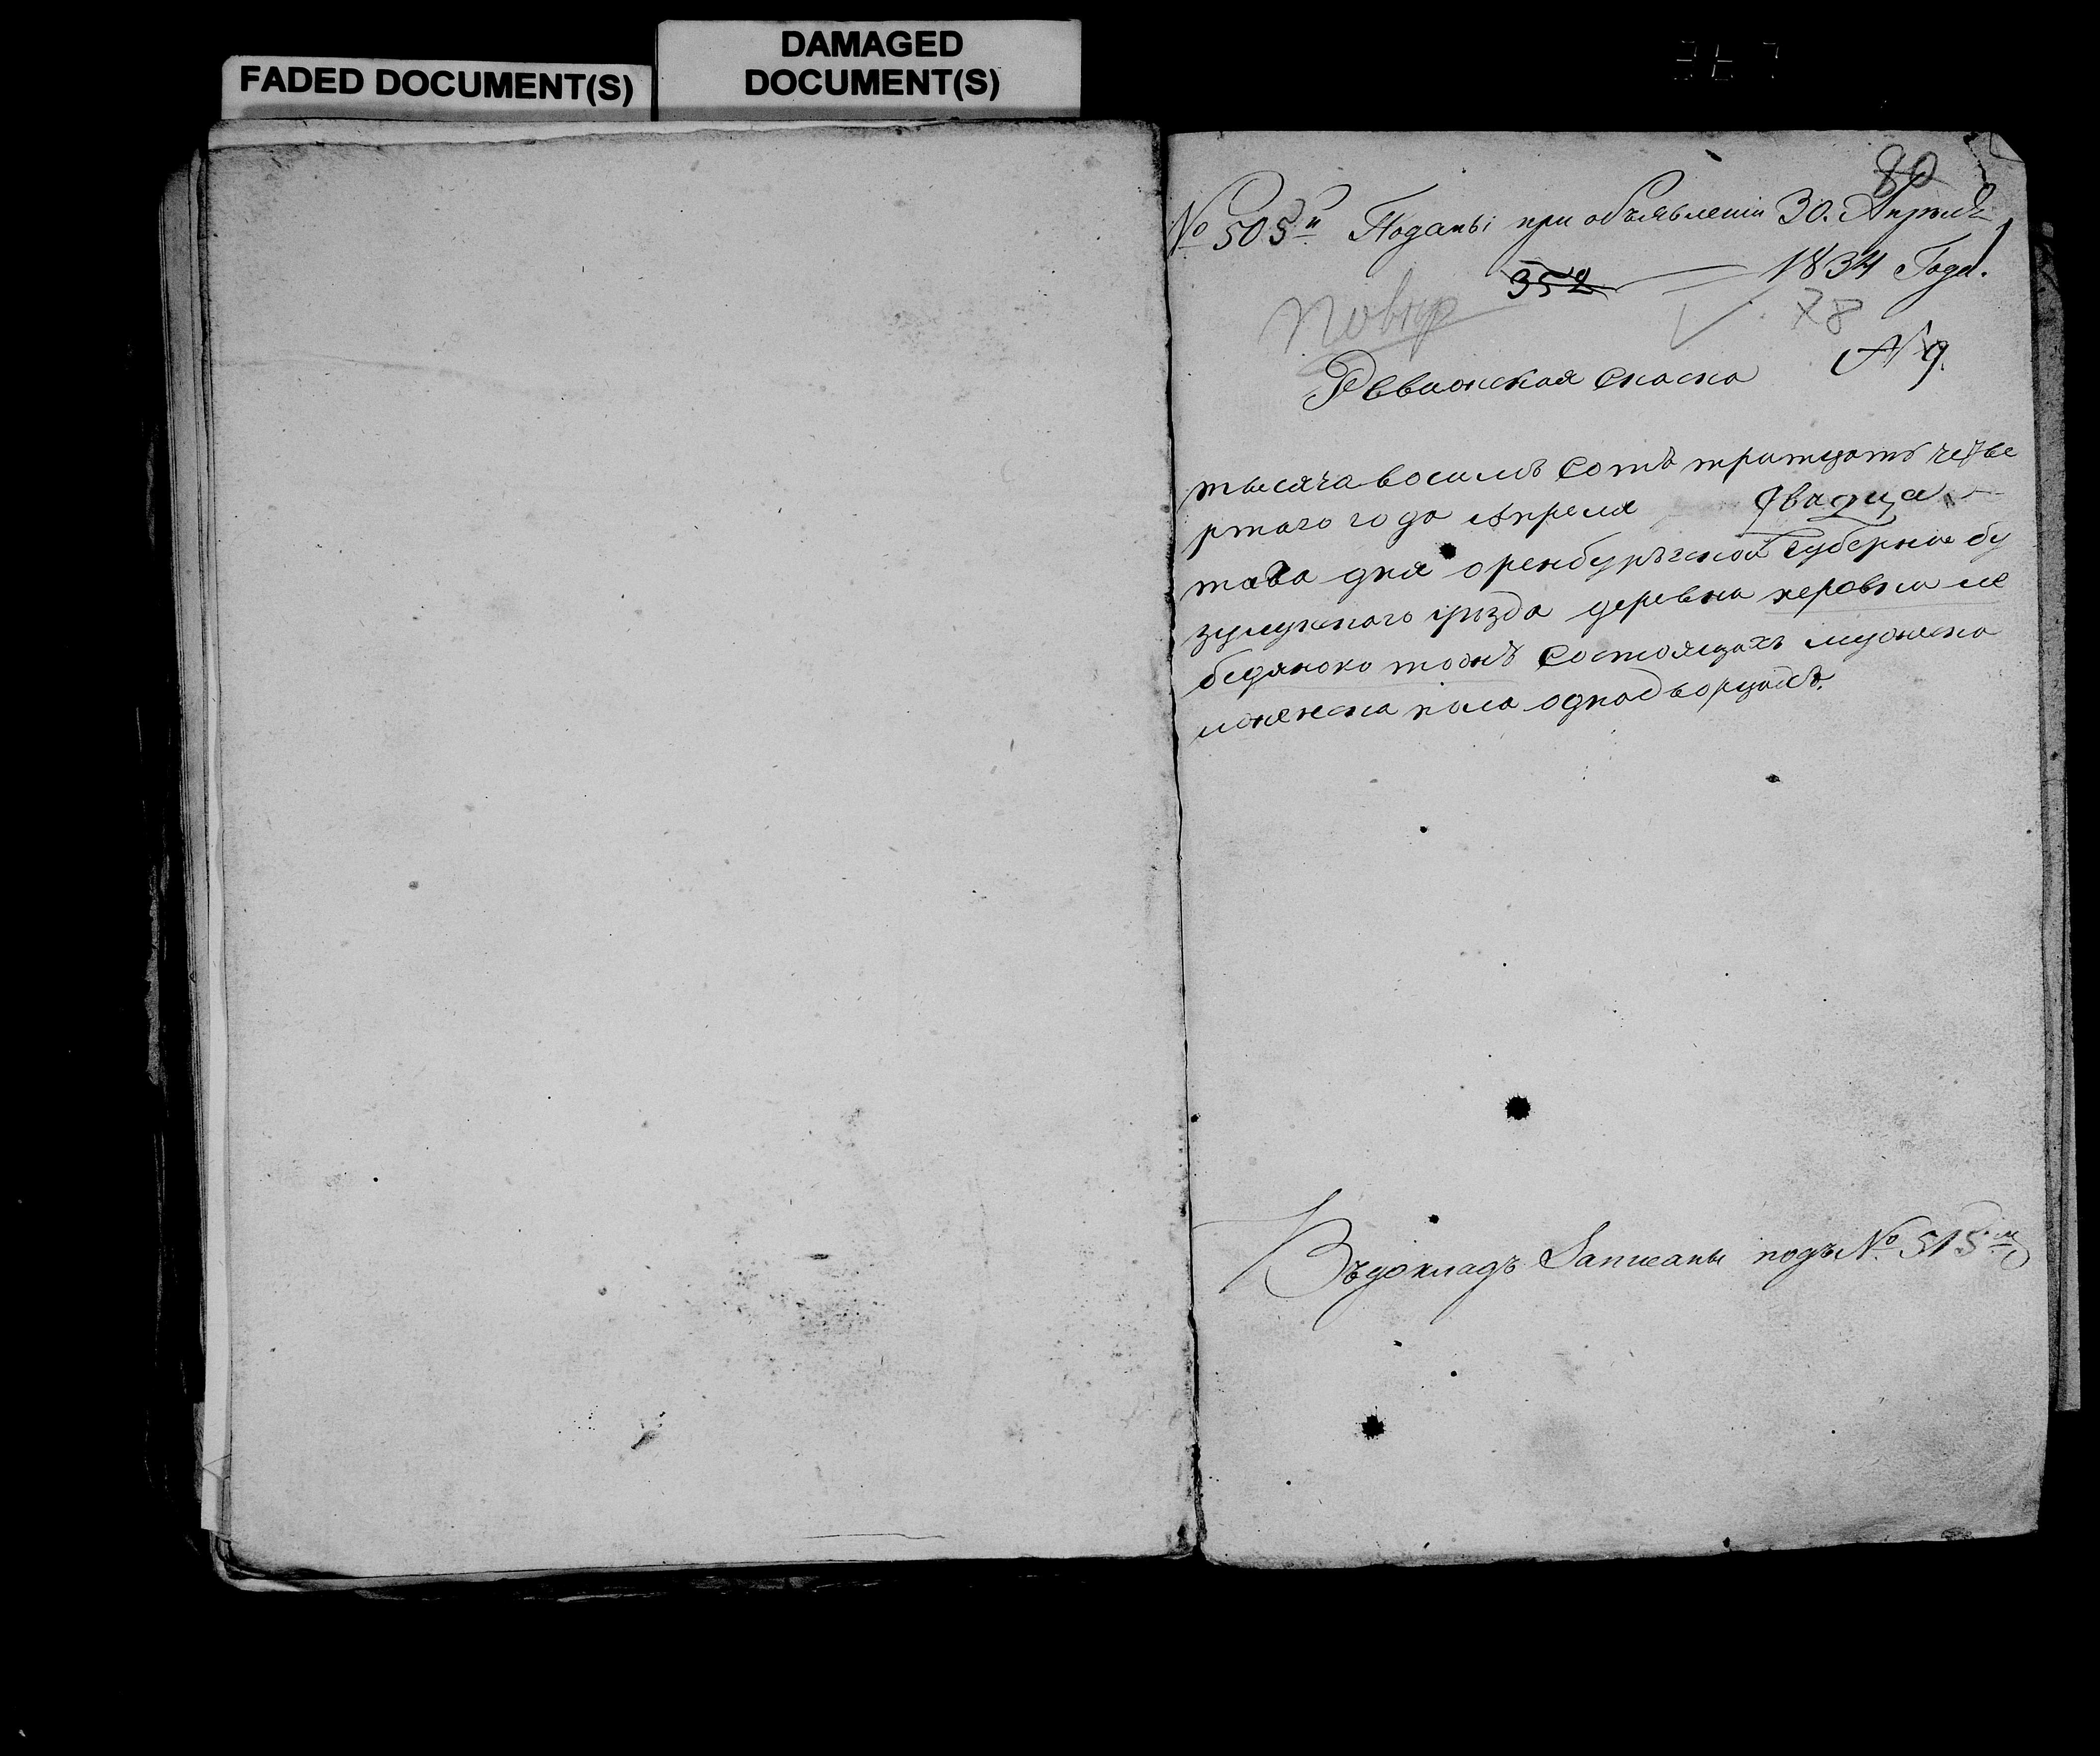 FADED DOCUMENT(S)
DAMAGED
DOCUMENT(S)
80
№ 505й Поданы при объявленіи 30. Апреля
352 1834 Года.
повер 78
№ 9.
Ревижская скаска
тысяча восимъ сотъ тритцать четве
ртого года Апреля двадца
таго дня оренбурхской губерние бу
зулукского уезда деревна
тожъ состоящахъ мужеска
иженска пола однодворцахъ.
Въ докладъ Записаны подъ № 515м